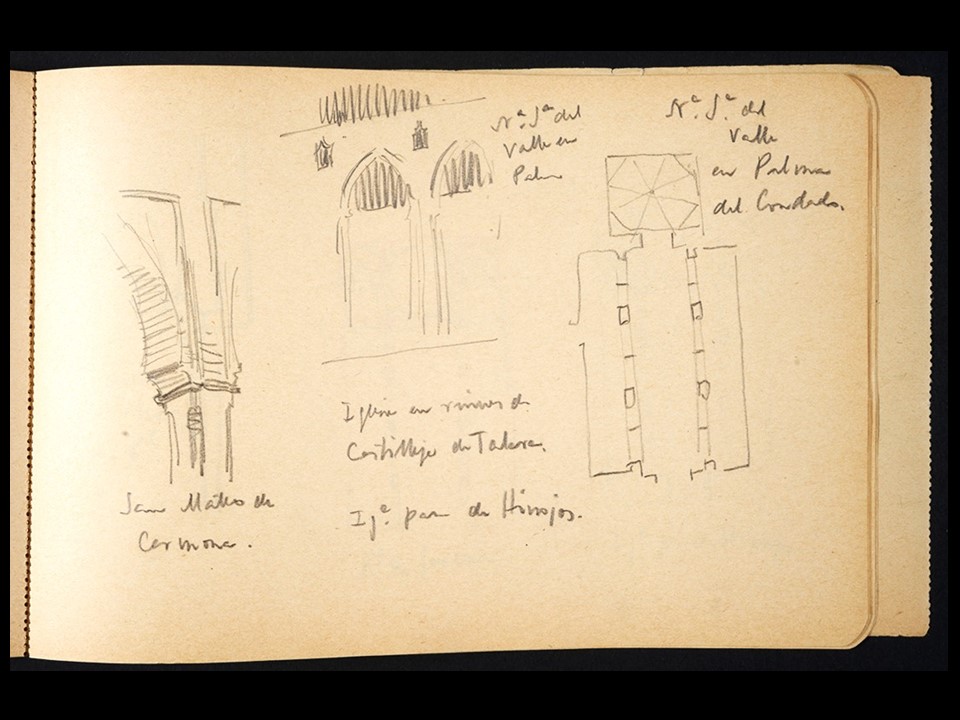 Nª. Sª del
Valle en
Palma
Nª. Sª. del
Valle
en Palma
del Condado.
Iglesia en ruinas de
Castilleja de Talara.
San Mateo de
Carmona.
Igª. par. de Hinojos.